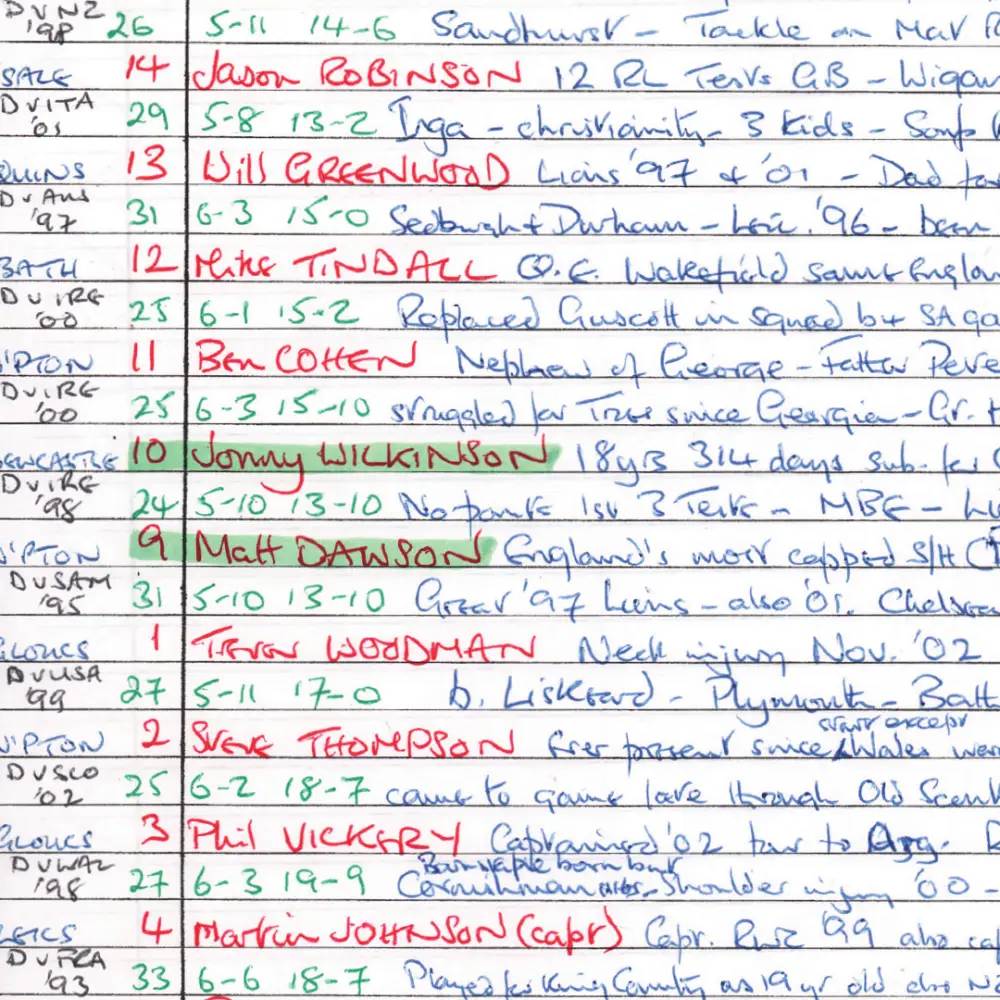 DVNZ '98 26 5-11 14-6 Sandhurst - Tackle on Mat
SALE 14 Jason ROBINSON 12 RL Tests GB - Wigan
DVITA '01 29 5-8 13-2 Inga - christianity - 3 kids -
QUINS 13 Will GREENWOOD Lions '97 + '01 - Dad
DVAUS '97 31 6-3 15-0 Sedburgh + Durham - Leic. '96 - been
BATH 12 Mike TINDALL Q.E. Wakefield same
DVIRE '00 25 6-1 15-2 Replaced Guscott in squad b4 SA
'PTON 11 Ben COHEN Nephew of George - Father Pete
DVIRE '00 25 6-3 15-10 struggled for Tries since Georgia - Gr.
EWCASTLE 10 Jonny WILKINSON 18yrs 314 days sub.
DVIRE '98 24 5-10 13-10 No 1st 3 Tests - MBE -
'PTON 9 Matt DAWSON England's most capped S/H
DVSAM '95 31 5-10 13-10 Great '97 Lions - also '01. Chelsea
GLOUCS 1 Trevor WOODMAN Neck injury Nov. '02
DVUSA '99 27 5-11 17-0 b. Liskeard - Plymouth - Bath
'PTON 2 Steve THOMPSON Ever present since Wales
start except
DVSCO '02 25 6-2 18-7 came to game late through Old
GLOUCS 3 Phil VICKERY Captained '02 tour to Arg.
Barnstaple born but
DVWAL '98 27 6-3 19-9 Cornishman - Shoulder injury '00 -
LEICS 4 Martin JOHNSON (capt) Capt. RWC '99 also
DVFRA '93 33 6-6 18-7 Played for King Country as 19 yr old also